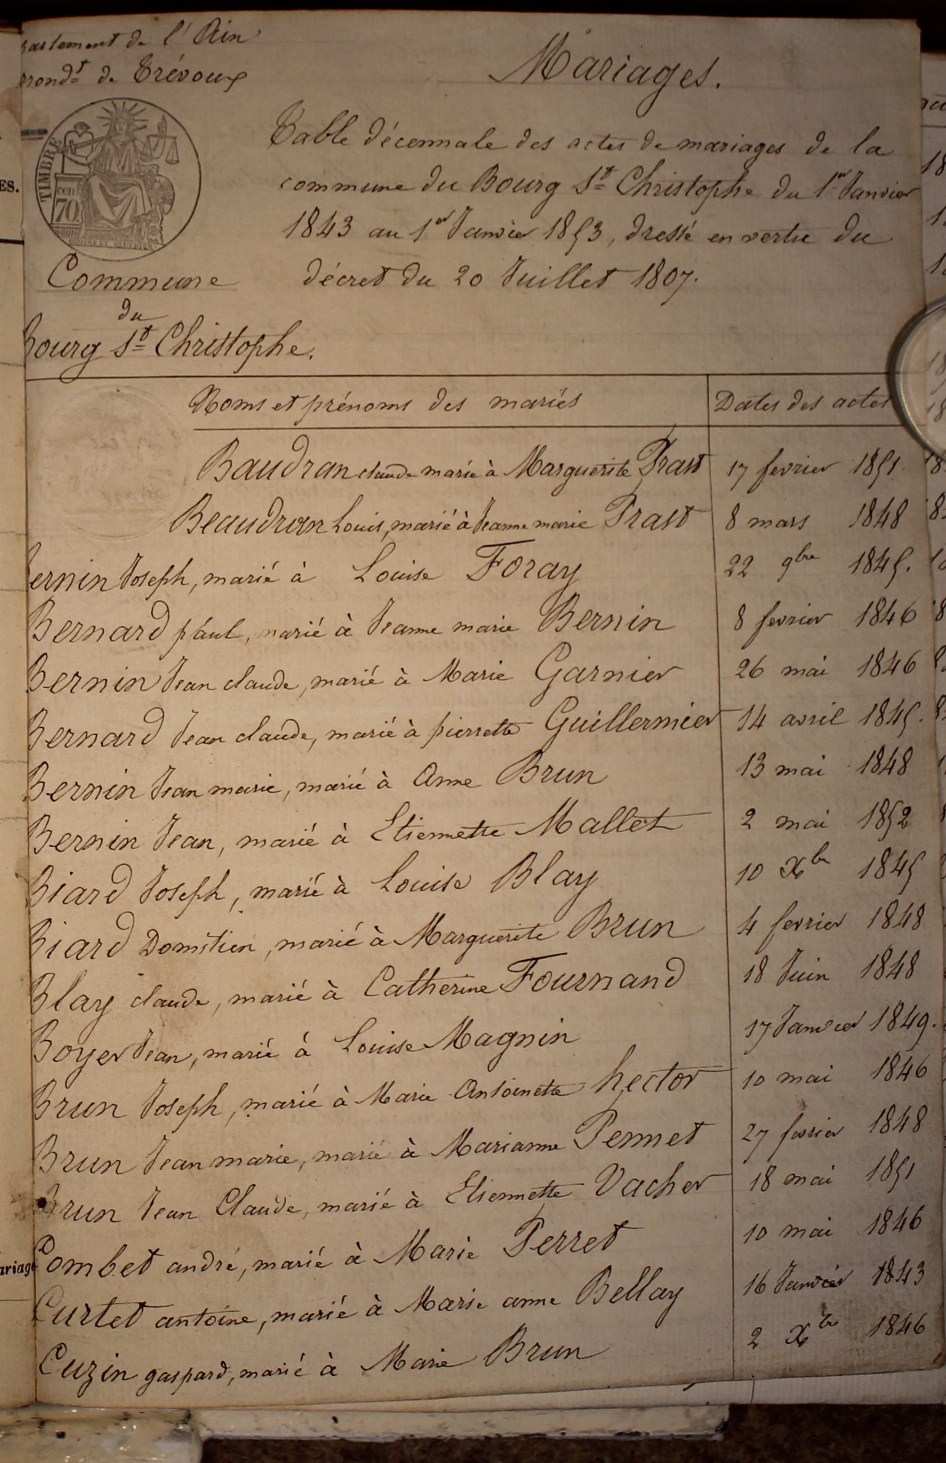 partement de l'Ain
rrondt de Trévoux
Mariages.
TIMBRE
70
Table décennale des actes de mariages de la
commune du Bourg St Christophe du 1er Janvier
1843 au 1er Janvier 1853, dressé en vertu du
décret du 20 Juillet 1807.
Commune
du
Bourg St Christophe.
Noms et prénoms des mariés Dates des actes
Baudran claude marié à Marguerite Prast 17 fevrier 1851
Beaudran Louis, marié à Jeanne marie Prast 8 mars 1848
ernin Joseph, marié à Louise Foray 22 9bre 1845.
Bernard paul, marié à Jeanne marie Bernin 8 fevrier 1846
Bernin Jean claude, marié à Marie Garnier 26 mai 1846
Bernard Jean claude, marié à pierrette Guillermier 14 avril 1845.
Bernin Jean marie, marié à Anne Brun 13 mai 1848
Bernin Jean, marié à Etiennette Mallet 2 mai 1852
Biard Joseph, marié à Louise Blay 10 Xbre 1845
Biard Domitien, marié à Marguerite Brun 4 fevrier 1848
Blay claude, marié à Catherine Fournand 18 Juin 1848
Boyer Jean, marié à Louise Magnin 17 Janvier 1849.
Brun Joseph, marié à Marie Antoinette hector 10 mai 1846
Brun Jean marie, marié à Marianne Pennet 27 fevrier 1848
Brun Jean Claude, marié à Etiennette Vacher 18 mai 1851
Combet andré, marié à Marie Perret 10 mai 1846
Curtet antoine, marié à Marie anne Bellay 16 Janvier 1843
Cuzin gaspard, marié à Marie Brun 2 Xbre 1846